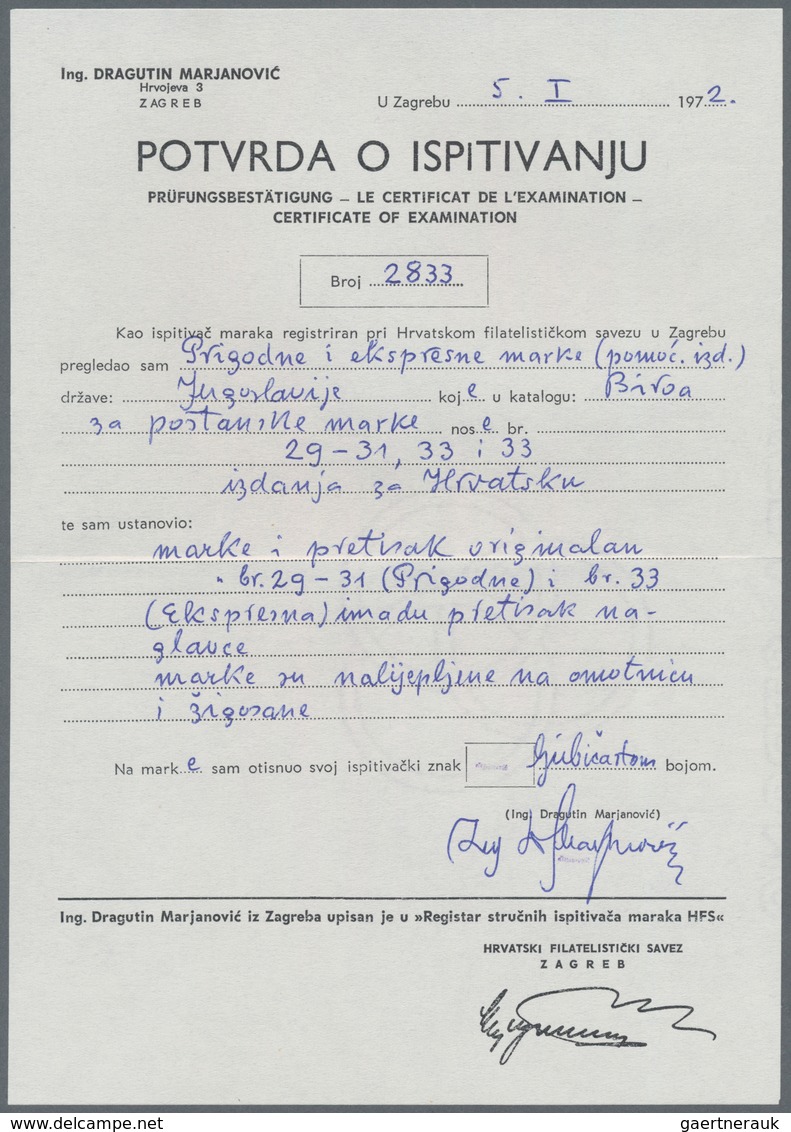 Ing. DRAGUTIN MARJANOVIĆ
Hrvojeva 3
ZAGREB
U Zagrebu 5. I 1972.
POTVRDA O ISPITIVANJU
PRÜFUNGSBESTÄTIGUNG – LE CERTIFICAT DE L'EXAMINATION –
CERTIFICATE OF EXAMINATION
Broj 2833
Kao ispitivač maraka registriran pri Hrvatskom filatelističkom savezu u Zagrebu
pregledao sam Prigodne i ekspresne marke (pomoć. izd.)
države: Jugoslavije koje u katalogu: Biroa
za poštanske marke nose br.
29-31, 33 i 33
izdanja za Hrvatsku
te sam ustanovio:
marke i pretisak originalan
br. 29-31 (Prigodne) i br. 33
(Ekspresna) imadu pretisak na-
glavce
marke su nalijepljene na omotnicu
i žigosane
Na marke sam otisnuo svoj ispitivački znak ljubičastom bojom.
(Ing. Dragutin Marjanović)
Ing. Dragutin Marjanović iz Zagreba upisan je u »Registar stručnih ispitivača maraka HFS«
HRVATSKI FILATELISTIČKI SAVEZ
ZAGREB
delcampe.net
gaertnerauk